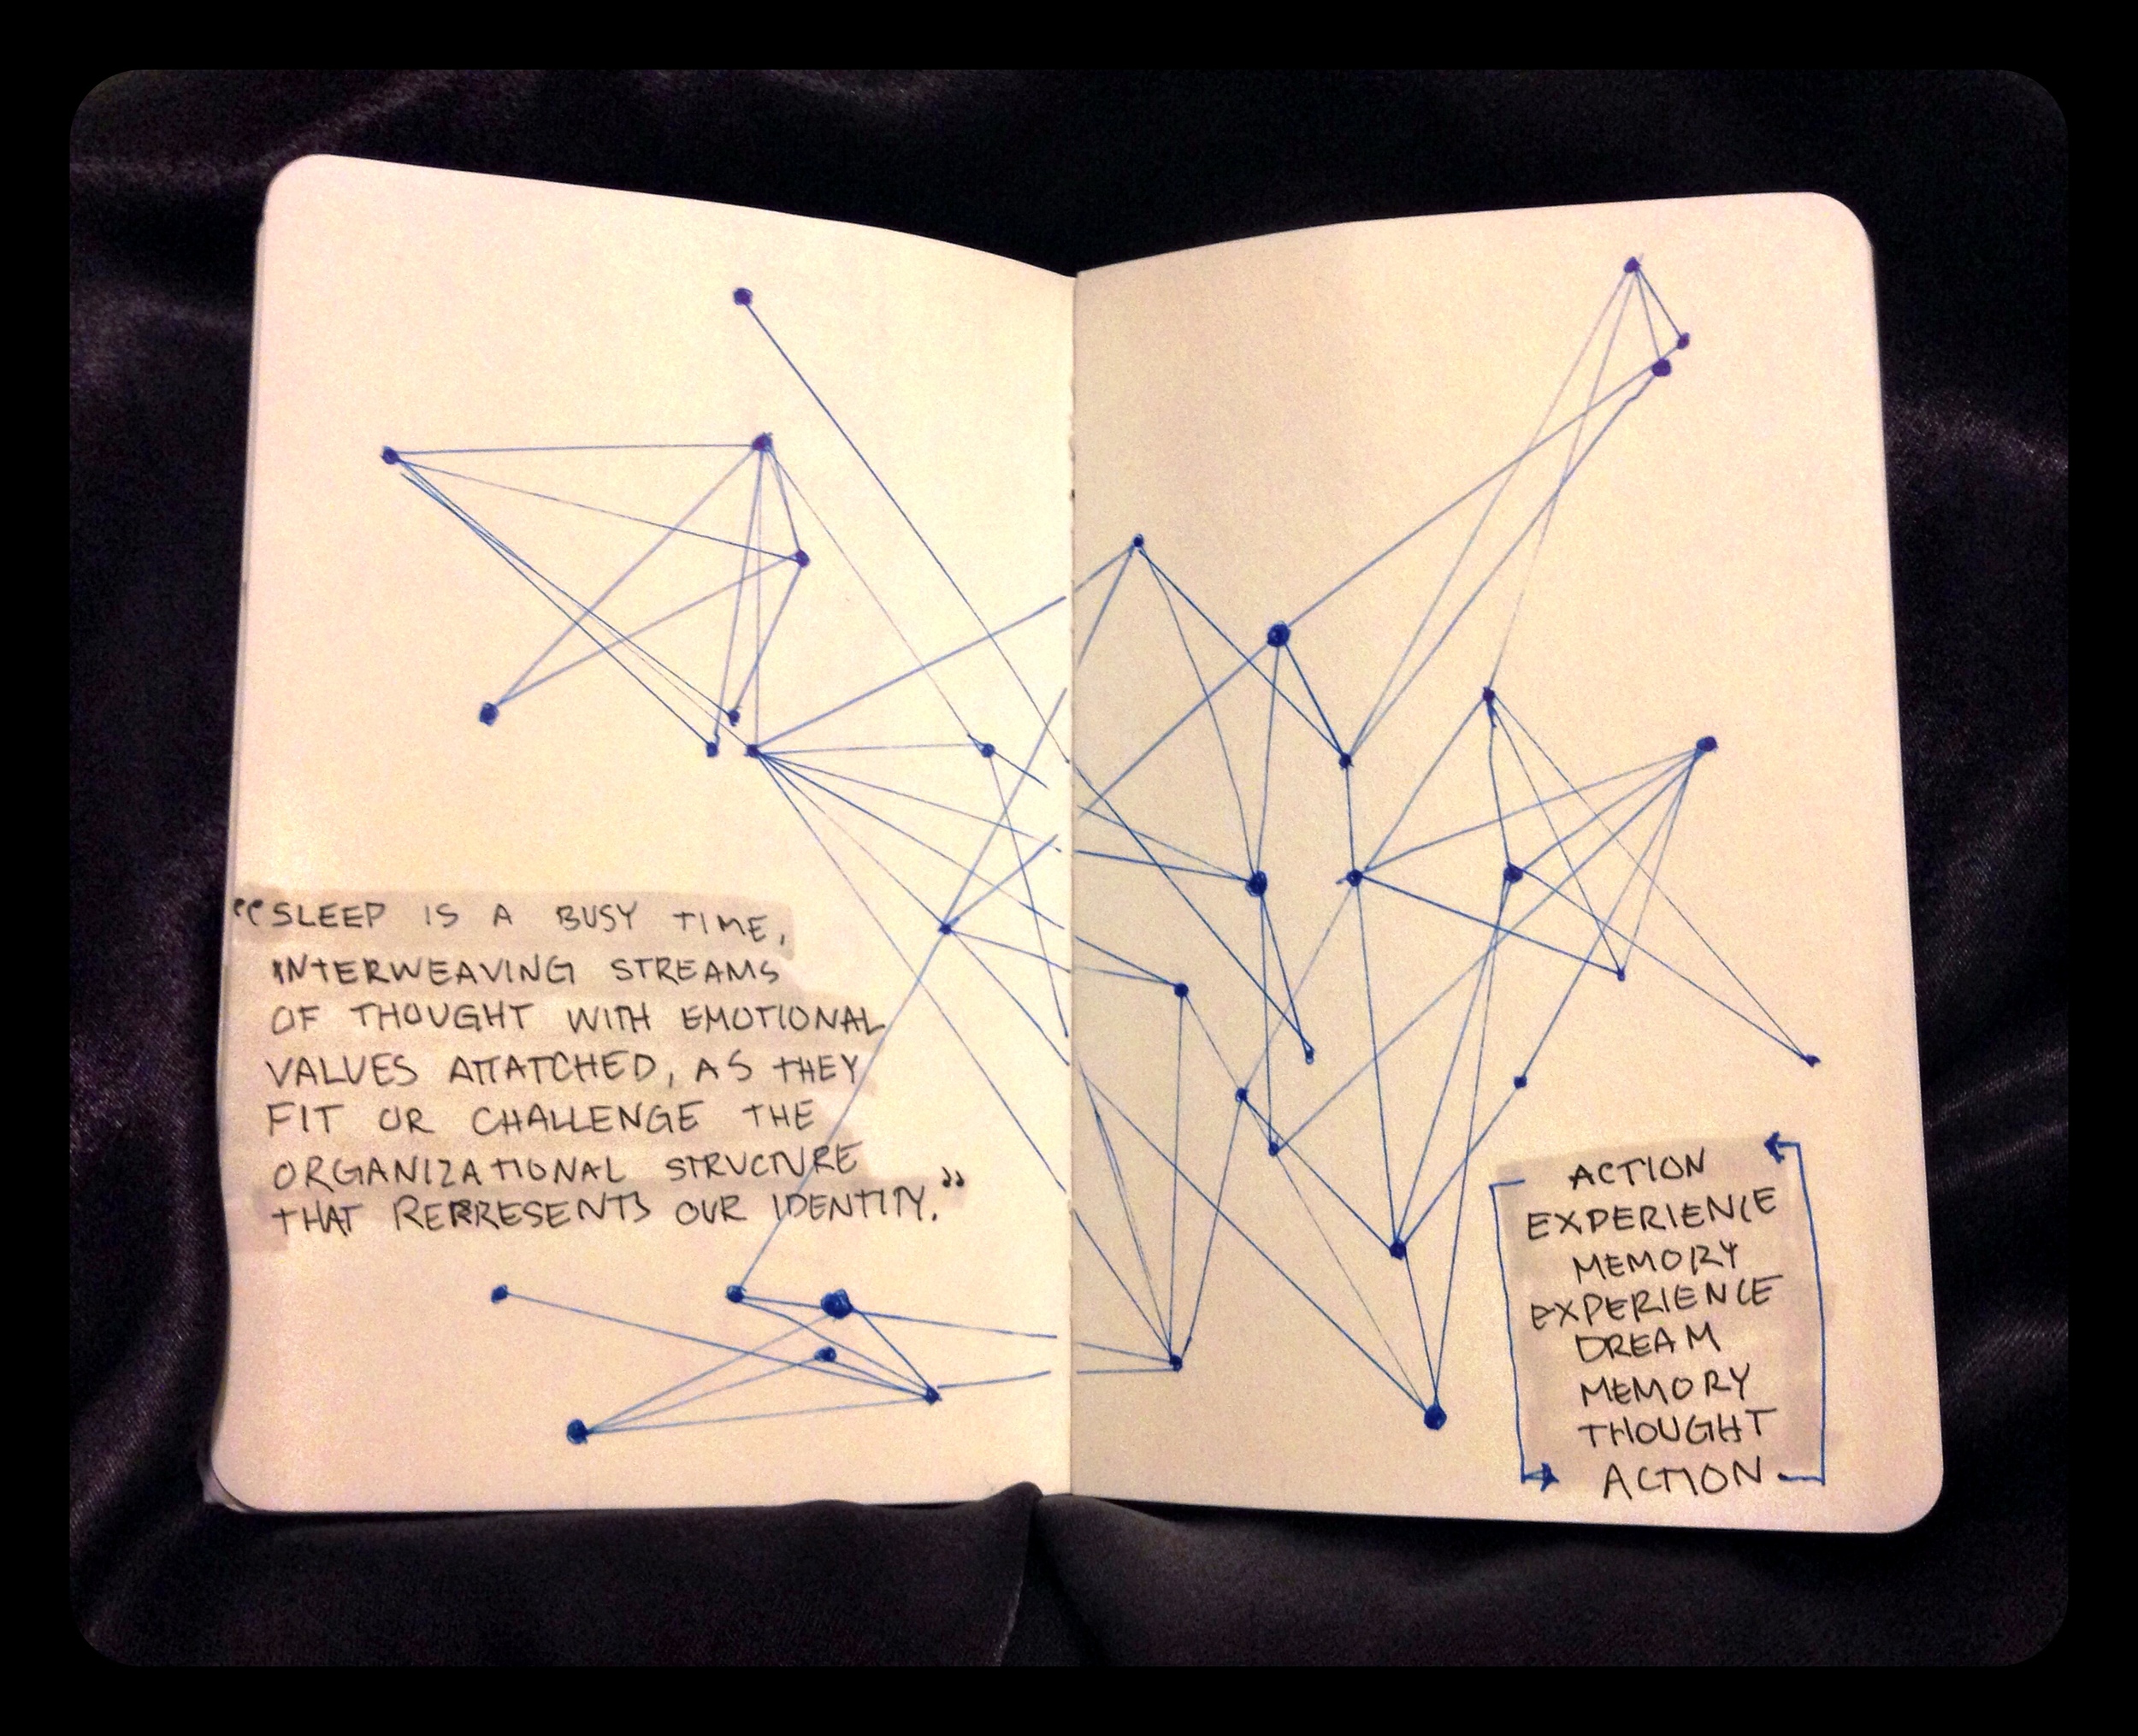 “SLEEP IS A BUSY TIME,
INTERWEAVING STREAMS
OF THOUGHT WITH EMOTIONAL
VALUES ATTATCHED, AS THEY
FIT OR CHALLENGE THE
ORGANIZATIONAL STRUCTURE
THAT REPRESENTS OUR IDENTITY.”
ACTION
EXPERIENCE
MEMORY
EXPERIENCE
DREAM
MEMORY
THOUGHT
ACTION